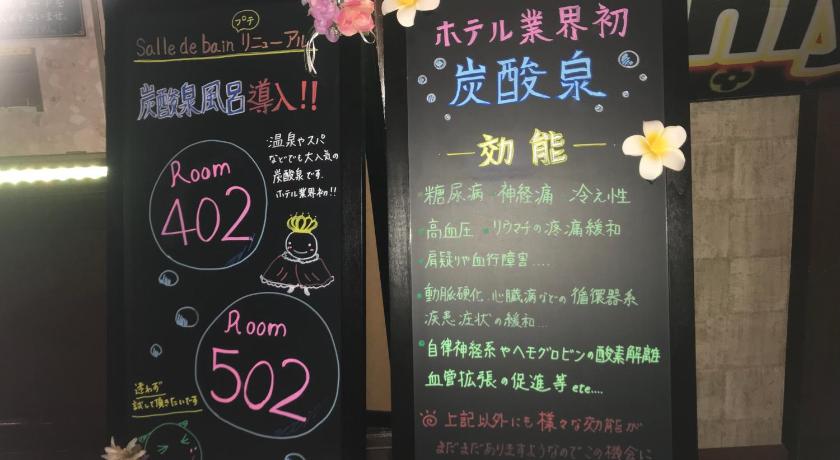 プチ
Salle de bain リニューアル
炭酸泉風呂導入!!
温泉やスパ
などでも大人気の
炭酸泉です.
ホテル業界初!!
Room
402
Room
502
迷わず
試して頂きたいです
ホテル業界初
炭酸泉
―効能―
糖尿病 神経痛 冷え性
高血圧 リウマチの疼痛緩和
肩凝りや血行障害....
動脈硬化.心臓病などの循環器系
疾患症状の緩和...
自律神経系やヘモグロビンの酸素解離
血管拡張の促進等etc....
上記以外にも様々な効能が
まだまだありますようなのでこの機会に